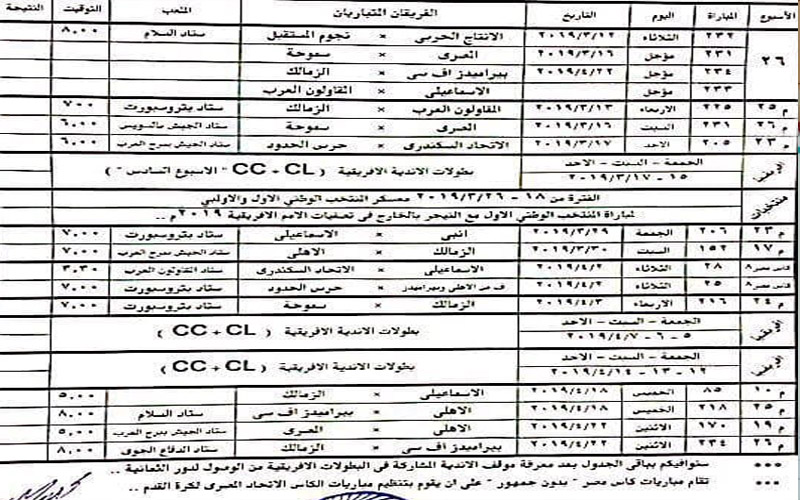 الأسبوع المباراة اليوم التاريخ الفريقان المتباريان الملعب التوقيت النتيجة
٢٦ ٢٣٢ الثلاثاء ٢٠١٩/٣/١٢ الانتاج الحربى × نجوم المستقبل ستاد السلام ٨,٠٠
٢٣١ مؤجل ٢٠١٩/٣/١٦ المصرى × سموحة
٢٣٤ مؤجل ٢٠١٩/٤/٢٢ بيراميدز اف سى × الزمالك
٢٣٣ مؤجل الاسماعيلى × المقاولون العرب
م ٢٥ ٢٢٥ الاربعاء ٢٠١٩/٣/١٣ المقاولون العرب × الزمالك ستاد بتروسبورت ٧,٠٠
م ٢٦ ٢٣١ السبت ٢٠١٩/٣/١٦ المصرى × سموحة ستاد الجيش بالسويس ٦,٠٠
م ٢٣ ٢٠٥ الاحد ٢٠١٩/٣/١٧ الاتحاد السكندرى × حرس الحدود ستاد الجيش ببرج العرب ٦,٠٠
الجمعة – السبت – الاحد
١٥ – ٢٠١٩/٣/١٧ بطولات الاندية الافريقية ( CC + CL " الاسبوع السادس " )
منتخبات الفترة من ١٨ – ٢٠١٩/٣/٢٦ معسكر المنتخب الوطني الاول والاولمبي
لمباراة المنتخب الوطني الاول مع النيجر بالخارج فى تصفيات الامم الافريقية ٢٠١٩م ..
م ٢٣ ٢٠٦ الجمعة ٢٠١٩/٣/٢٩ انبى × الاسماعيلى ستاد بتروسبورت ٧,٠٠
م ١٧ ١٥٢ السبت ٢٠١٩/٣/٣٠ الزمالك × الاهلى ستاد الجيش ببرج العرب ٧,٠٠
كاس مصر ٨ ٢٨ الثلاثاء ٢٠١٩/٤/٢ الاسماعيلى × الاتحاد السكندرى ستاد المقاولون العرب ٣,٣٠
كاس مصر ٨ ٢٥ الثلاثاء ٢٠١٩/٤/٢ ف من الاهلى وبيراميدز × حرس الحدود ستاد بتروسبورت ٧,٠٠
م ٢٤ ٢١٦ الاربعاء ٢٠١٩/٤/٣ الزمالك × سموحة ستاد بتروسبورت ٧,٠٠
الجمعة – السبت – الاحد
٥ – ٦ – ٢٠١٩/٤/٧ بطولات الاندية الافريقية ( CC + CL )
الجمعة – السبت – الاحد
١٢ – ١٣ – ٢٠١٩/٤/١٤ بطولات الاندية الافريقية ( CC + CL )
م ١٠ ٨٥ الخميس ٢٠١٩/٤/١٨ الاسماعيلى × الزمالك ٥,٠٠
م ٢٥ ٢١٨ الخميس ٢٠١٩/٤/١٨ الاهلى × بيراميدز اف سى ستاد السلام ٨,٠٠
م ١٩ ١٧٠ الاثنين ٢٠١٩/٤/٢٢ الاهلى × المصرى ستاد الجيش ببرج العرب ٥,٠٠
م ٢٦ ٢٣٤ الاثنين ٢٠١٩/٤/٢٢ بيراميدز اف سى × الزمالك ستاد الدفاع الجوى ٨,٠٠
سنوافيكم بباقى الجدول بعد معرفة موقف الاندية المشاركة فى البطولات الافريقية من الوصول لدور الثمانية ..
تقام مباريات كاس مصر " بدون جمهور " على ان يقوم بتنظيم مباريات الكاس الاتحاد المصرى لكرة القدم ..